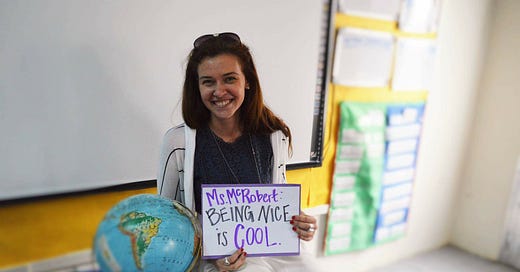 Ms. McRobert:
BEING NICE
is COOL.